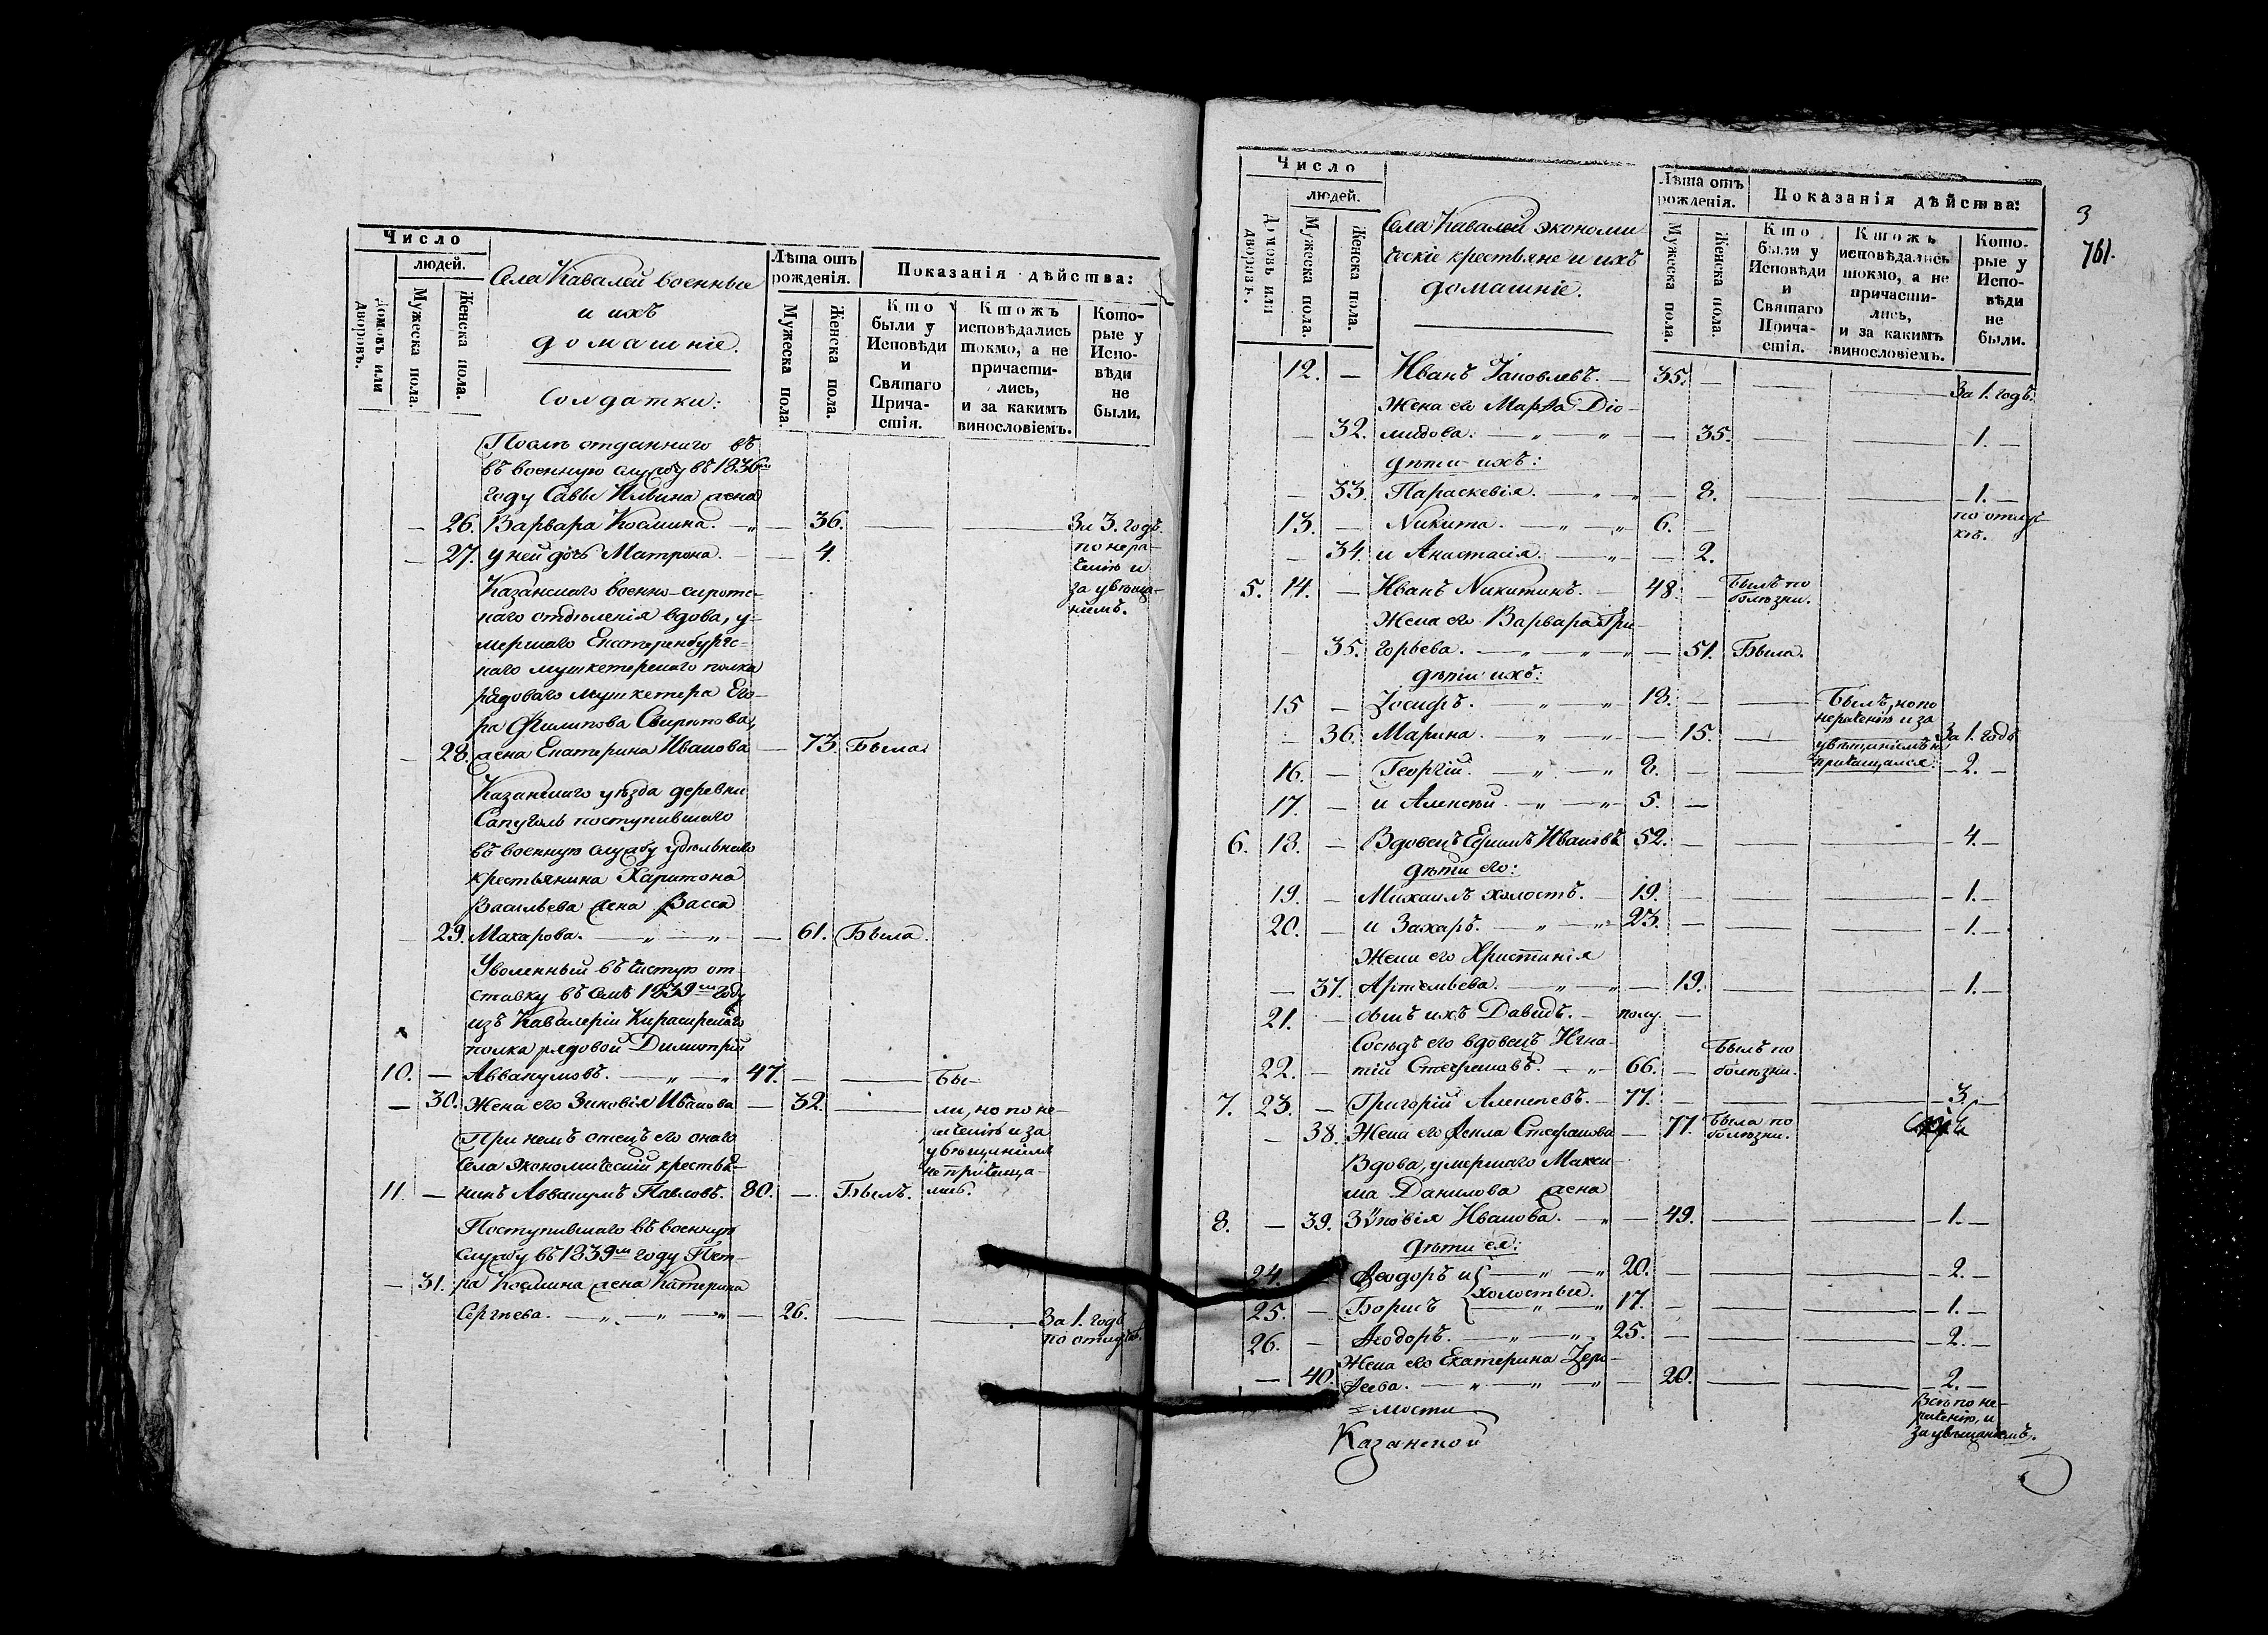 Число
людей.
Домовъ или дворовъ.
Мужеска пола.
Женска пола.
Села Кавалей военные
и ихъ
домашніе.
Лѣта отъ
рожденія.
Мужеска пола.
Женска пола.
Показанія дѣйства:
Кто
были у
Исповѣди
и
Святаго
Прича-
стія.
Ктожъ
исповѣдались
токмо, а не
причасти-
лись,
и за какимъ
винословіемъ.
Кото-
рые у
Испо-
вѣди
не
были.
Солдатки:
отданнаго въ
въ военную службу въ 1836м
году Саввы Ильина жена
— 26. Варвара Космина. — „ — 36. — — За 3. годъ
— 27. у ней дочь Матрона. — — 4. по нера-
чению и
Казанскаго военно-сиротс- за увѣща-
наго отдѣленія вдова, у- ніемъ.
мершаго Екатеринбургс-
каго мушкетерскаго полка
рядоваго мушкетера Его-
ра Филипова
— 28. жена Екатерина Иванова — 73. Была.
Казанскаго уѣзда деревни
поступившаго
въ военную службу удѣльнаго
крестьянина Харитона
Васильева жена Васса
— 29. Макарова. — „ — „ — — 61. Была.
Уволенный въ чистую от-
ставку въ семъ 1839м году
изъ Кавалеріи Кирасирскаго
полка рядовой Димитрій
10. — Аввакумовъ. — „ — „ 47. — — Бы-
— 30. Жена его Зиновія Иванова — 32. — ли, но по не-
раченію и за
При немъ отецъ его онаго увѣщаніемъ
Села экономическій крестья- не прічаща-
11. — нинъ Аввакумъ Павловъ. 80. — Былъ. лись.
Поступившаго въ военную
службу въ 1839м году Пет-
— 31. ра Космина жена Катерина
Сергѣева. — „ — „ — „ — 26. — — За 1. годъ
по отлучкѣ.
3
761.
Число
людей.
Домовъ или дворовъ.
Мужеска пола.
Женска пола.
Села Кавалей экономи-
ческіе крестьяне и ихъ
домашніе.
Лѣта отъ
рожденія.
Мужеска пола.
Женска пола.
Показанія дѣйства:
Кто
были у
Исповѣди
и
Святаго
Прича-
стія.
Ктожъ
исповѣдались
токмо, а не
причасти-
лись,
и за какимъ
винословіемъ.
Кото-
рые у
Испо-
вѣди
не
были.
12. — Иванъ Іаковлевъ. — 35. — — — За 1. годъ.
Жена его Марѳа Діо-
— 32. мидова. — „ — „ — 35. — — 1. —
дѣти ихъ:
— 33. Параскевія. — „ — „ — 8. — — 1. —
13. — Никита. — „ — „ 6. — по отлуч-
— 34. и Анастасія. — „ — 2. кѣ.
5. 14. — Иванъ Никитинъ. — 48. — Былъ по
болѣзни.
Жена его Варвара Гри-
— 35. горьева. — „ — „ — „ — 51. Была.
дѣти ихъ:
15 — Іосифъ. — „ — „ 18. — — Былъ, но по
нераченію и за
— 36. Марина. — „ — „ — 15. — увѣщаніемъ не За 1. годъ
16. — Георгій. — „ — „ 8. — — прічащался. — 2. —
17. — и Алексѣй. — „ — „ 5. —
6. 18. — Вдовецъ Ефимъ Ивановъ 52. — — — 4. —
дѣти его:
19. — Михаилъ холостъ. — 19. — — — 1. —
20. — и Захаръ. — „ — „ 23. — — — 1. —
Жена его Христинія
— 37. Артемьева. — „ — „ — 19. — — 1. —
21. — сынъ ихъ Давидъ. — полу. —
Сосѣдъ его вдовецъ Игна- Былъ по
22. — тій Стефановъ. — „ — 66. — болѣзни.
7. 23. — Григорій Алексѣевъ. — 77. — — — 3. —
— 38. Жена его Ѳекла Стефанова — 77. Была по
болѣзни.
Вдова, умершаго Макси-
ма Данилова жена
8. — 39. Зѵновія Иванова. — „ — 49. — — 1. —
дѣти ея:
24. — Ѳеодоръ и — „ — „ 20. — — — 2. —
холостые.
25. — Борисъ — „ — „ 17. — — — 1. —
26. — Ѳеодоръ. — „ — „ 25. — — — 2. —
Жена его Екатерина
— 40. — „ — „ — 20. — — 2. —
Всѣ по не-
раченію, и
за увѣщаніемъ.
Казанской